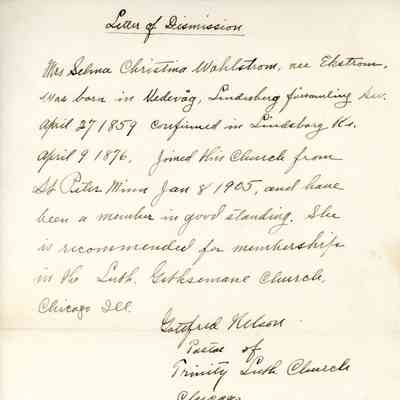 Letter of Dismission
Mrs Selma Christina Wahlstrom, nee Ekstrom,
was born in Vedevåg, Lindesberg
April 27 1859 confirmed in Lindsborg Ks.
April 9 1876. Joined this Church from
St Peter Minn Jan 8 1905, and have
been a member in good standing. She
is recommended for membership
in the Luth. Gethsemane Church,
Chicago Ill.
Gottfred Nelson
Pastor of
Trinity Luth Church
Chicago